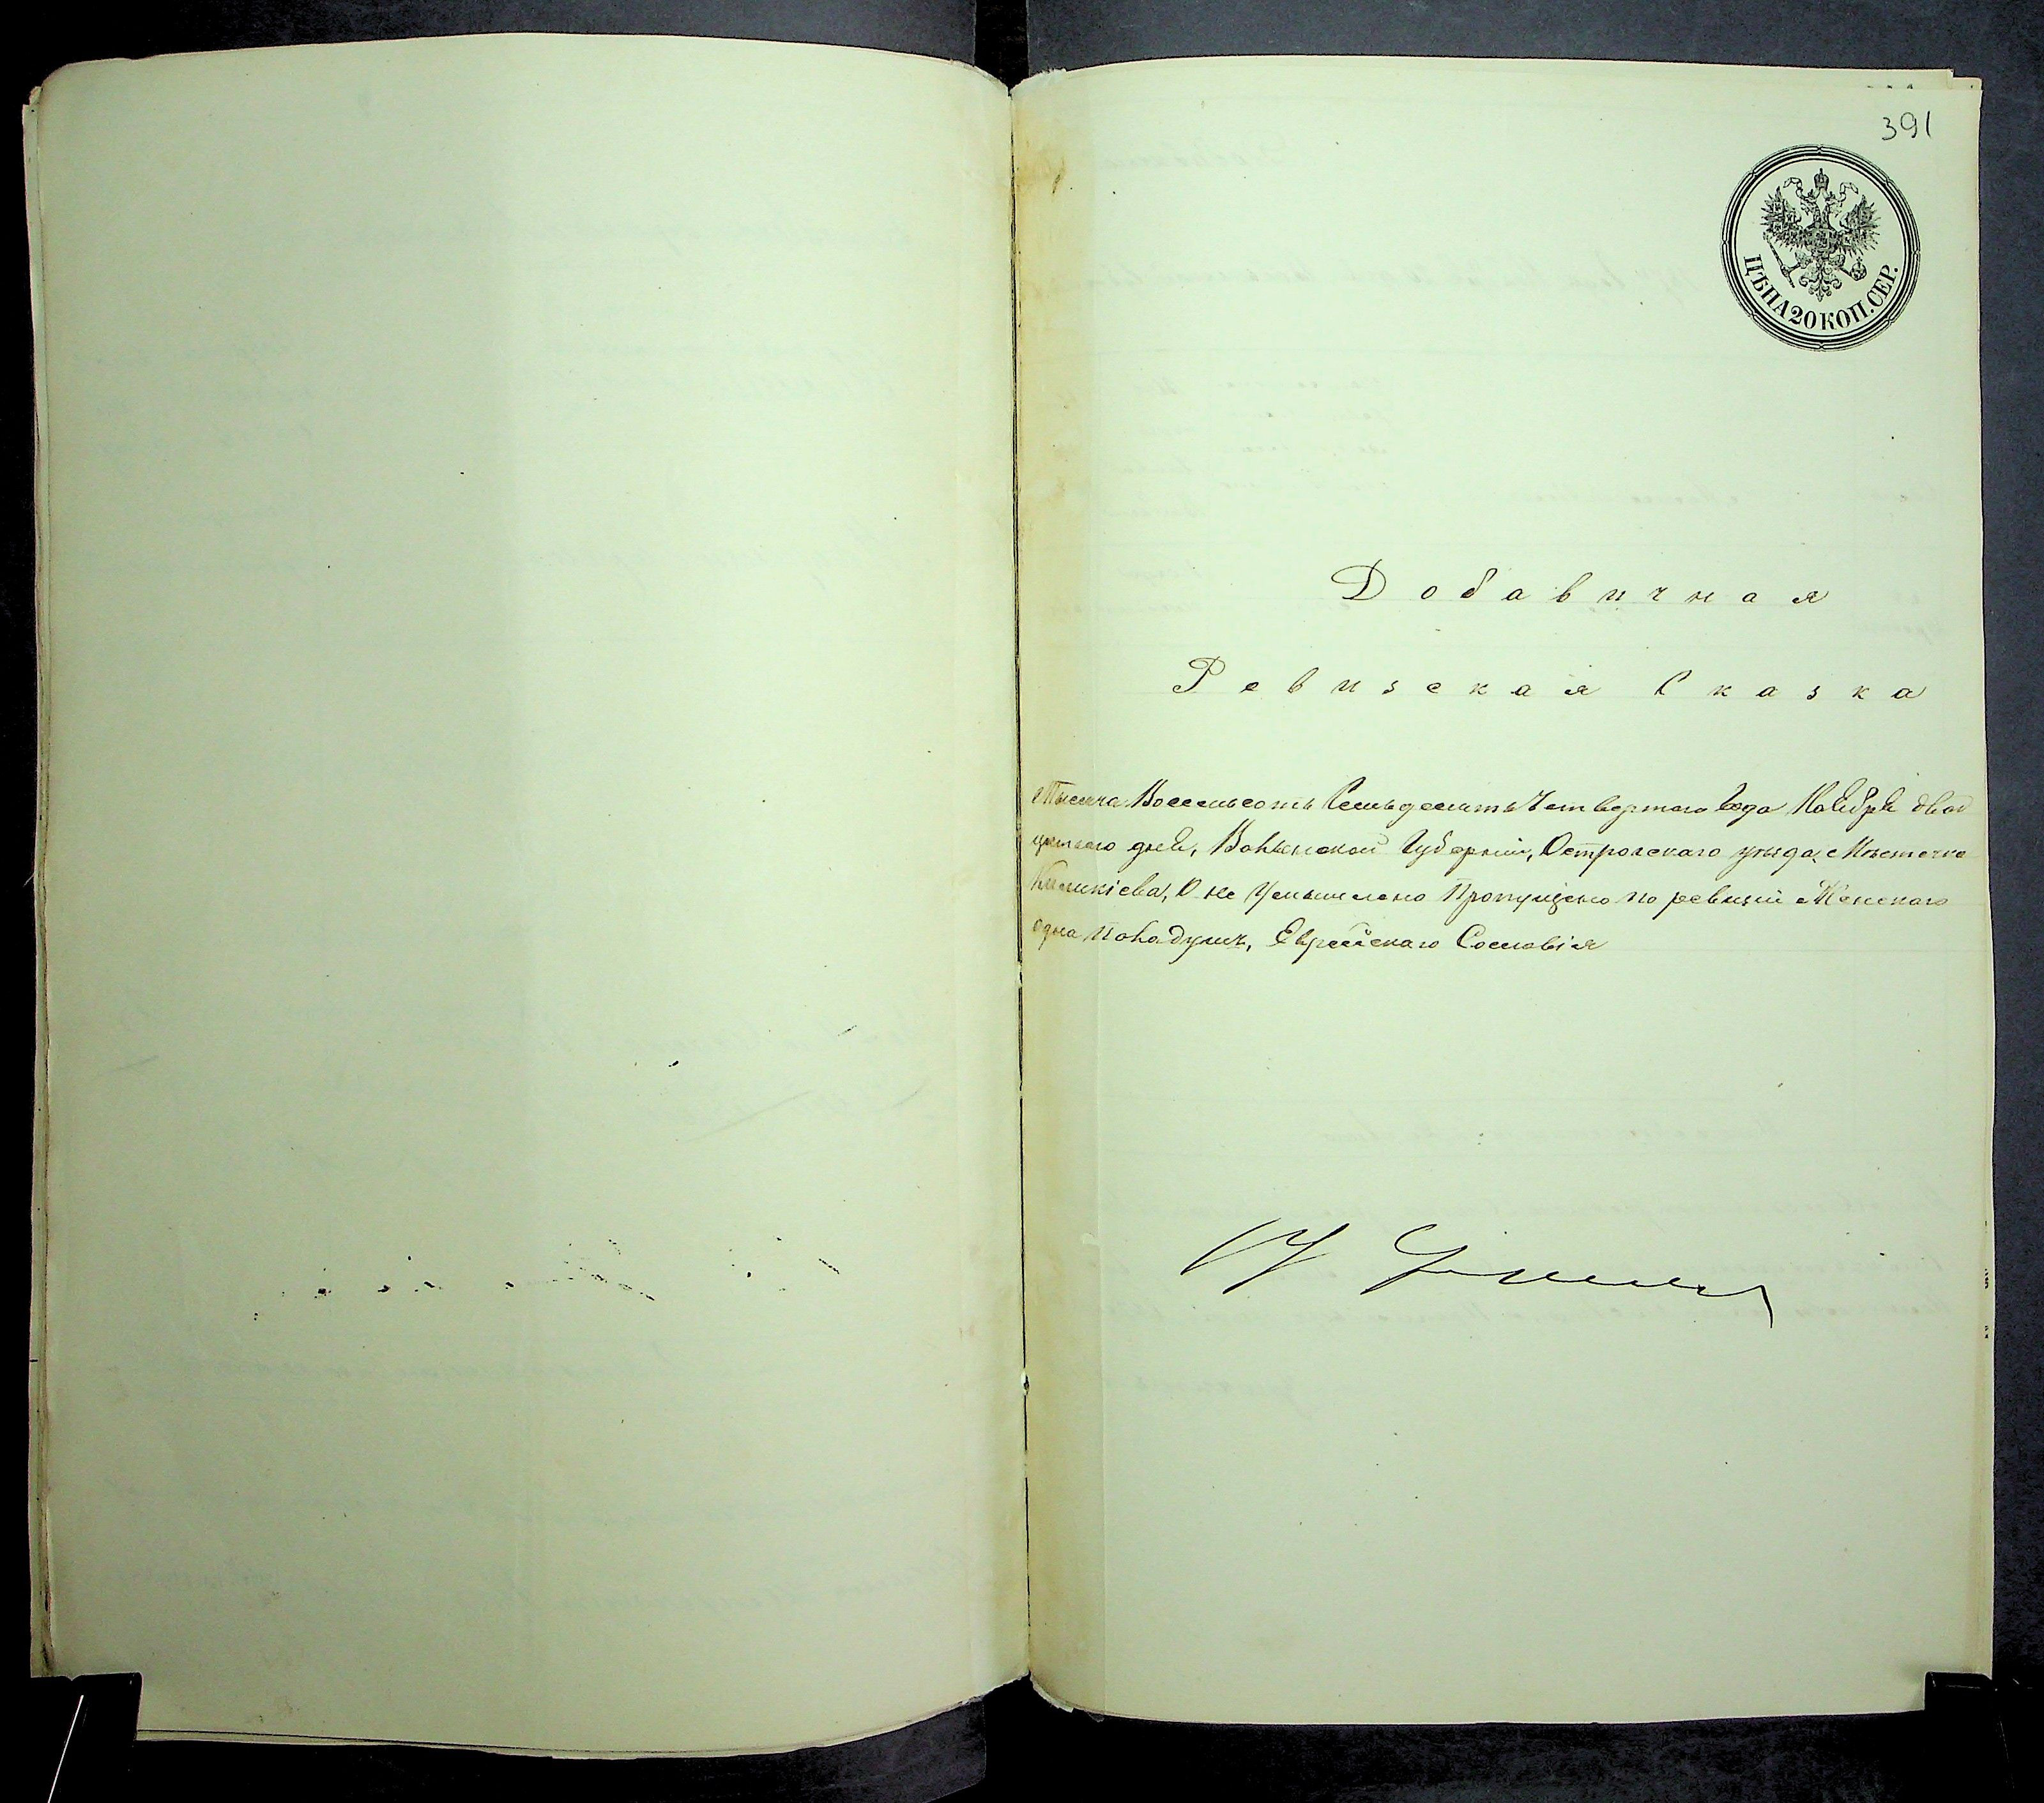 391
ЦѢНА 20 КОП. СЕР.
Добавичная
Ревизская Сказка
Тысяча Восемьсотъ Семьдесятъ Четвертого года Ноября двад
цатого дня, Волынской Губерніи, Острогскаго уезда, Мѣстечка
Киликіева, О не Умышлено Пропущено по ревизіи Женскаго
одна пола душъ, Еврейскаго Сословія